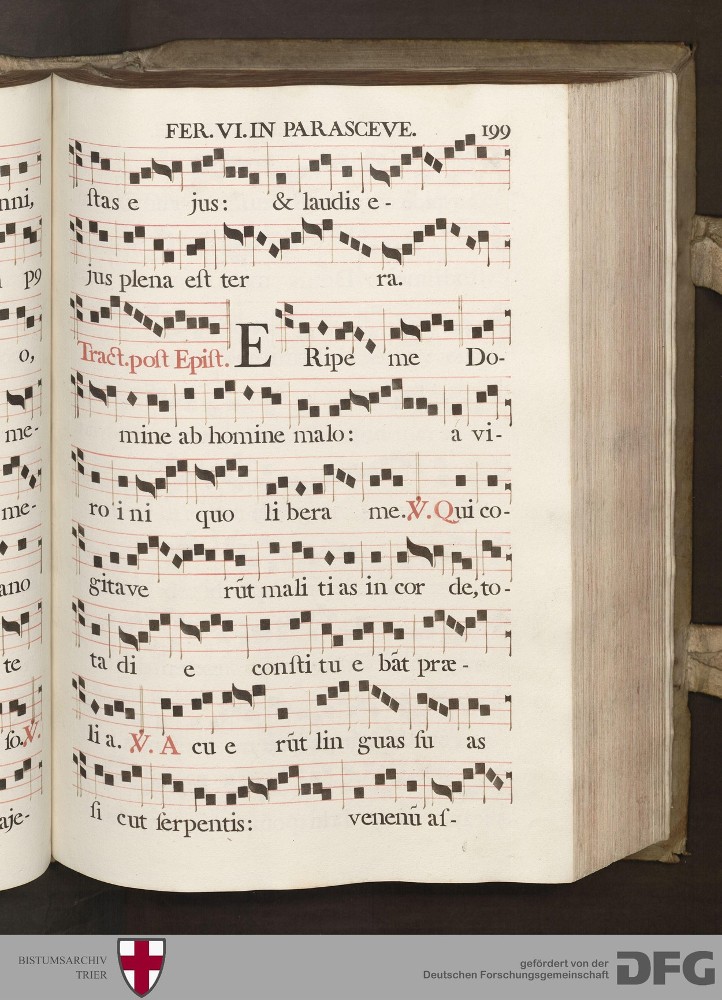 FER. VI. IN PARASCEVE. 199
ſtas e jus: & laudis e-
jus plena eſt ter ra.
Tract. poſt Epiſt. E Ripe me Do-
mine ab homine malo: á vi-
ro i ni quo li bera me. ℣. Qui co-
gitave rũt mali ti as in cor de, to-
ta di e conſti tu e bãt præ-
li a. ℣. A cu e rũt lin guas ſu as
ſi cut ſerpentis: venenũ aſ-
nni,
p9
o,
me-
me-
ano
te
ſo. ℣.
aje-
BISTUMSARCHIV
TRIER
gefördert von der
Deutschen Forschungsgemeinschaft
DFG